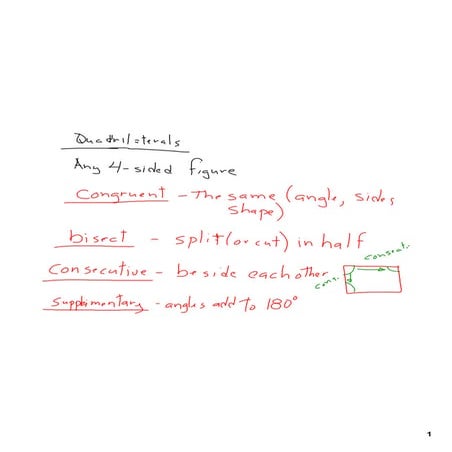 Quadrilaterals
Any 4-sided figure
Congruent - The same (angle, sides,
shape)
bisect - split (or cut) in half
Consecutive - beside each other
consecut.
cons.
Supplimentary - angles add to 180°
1